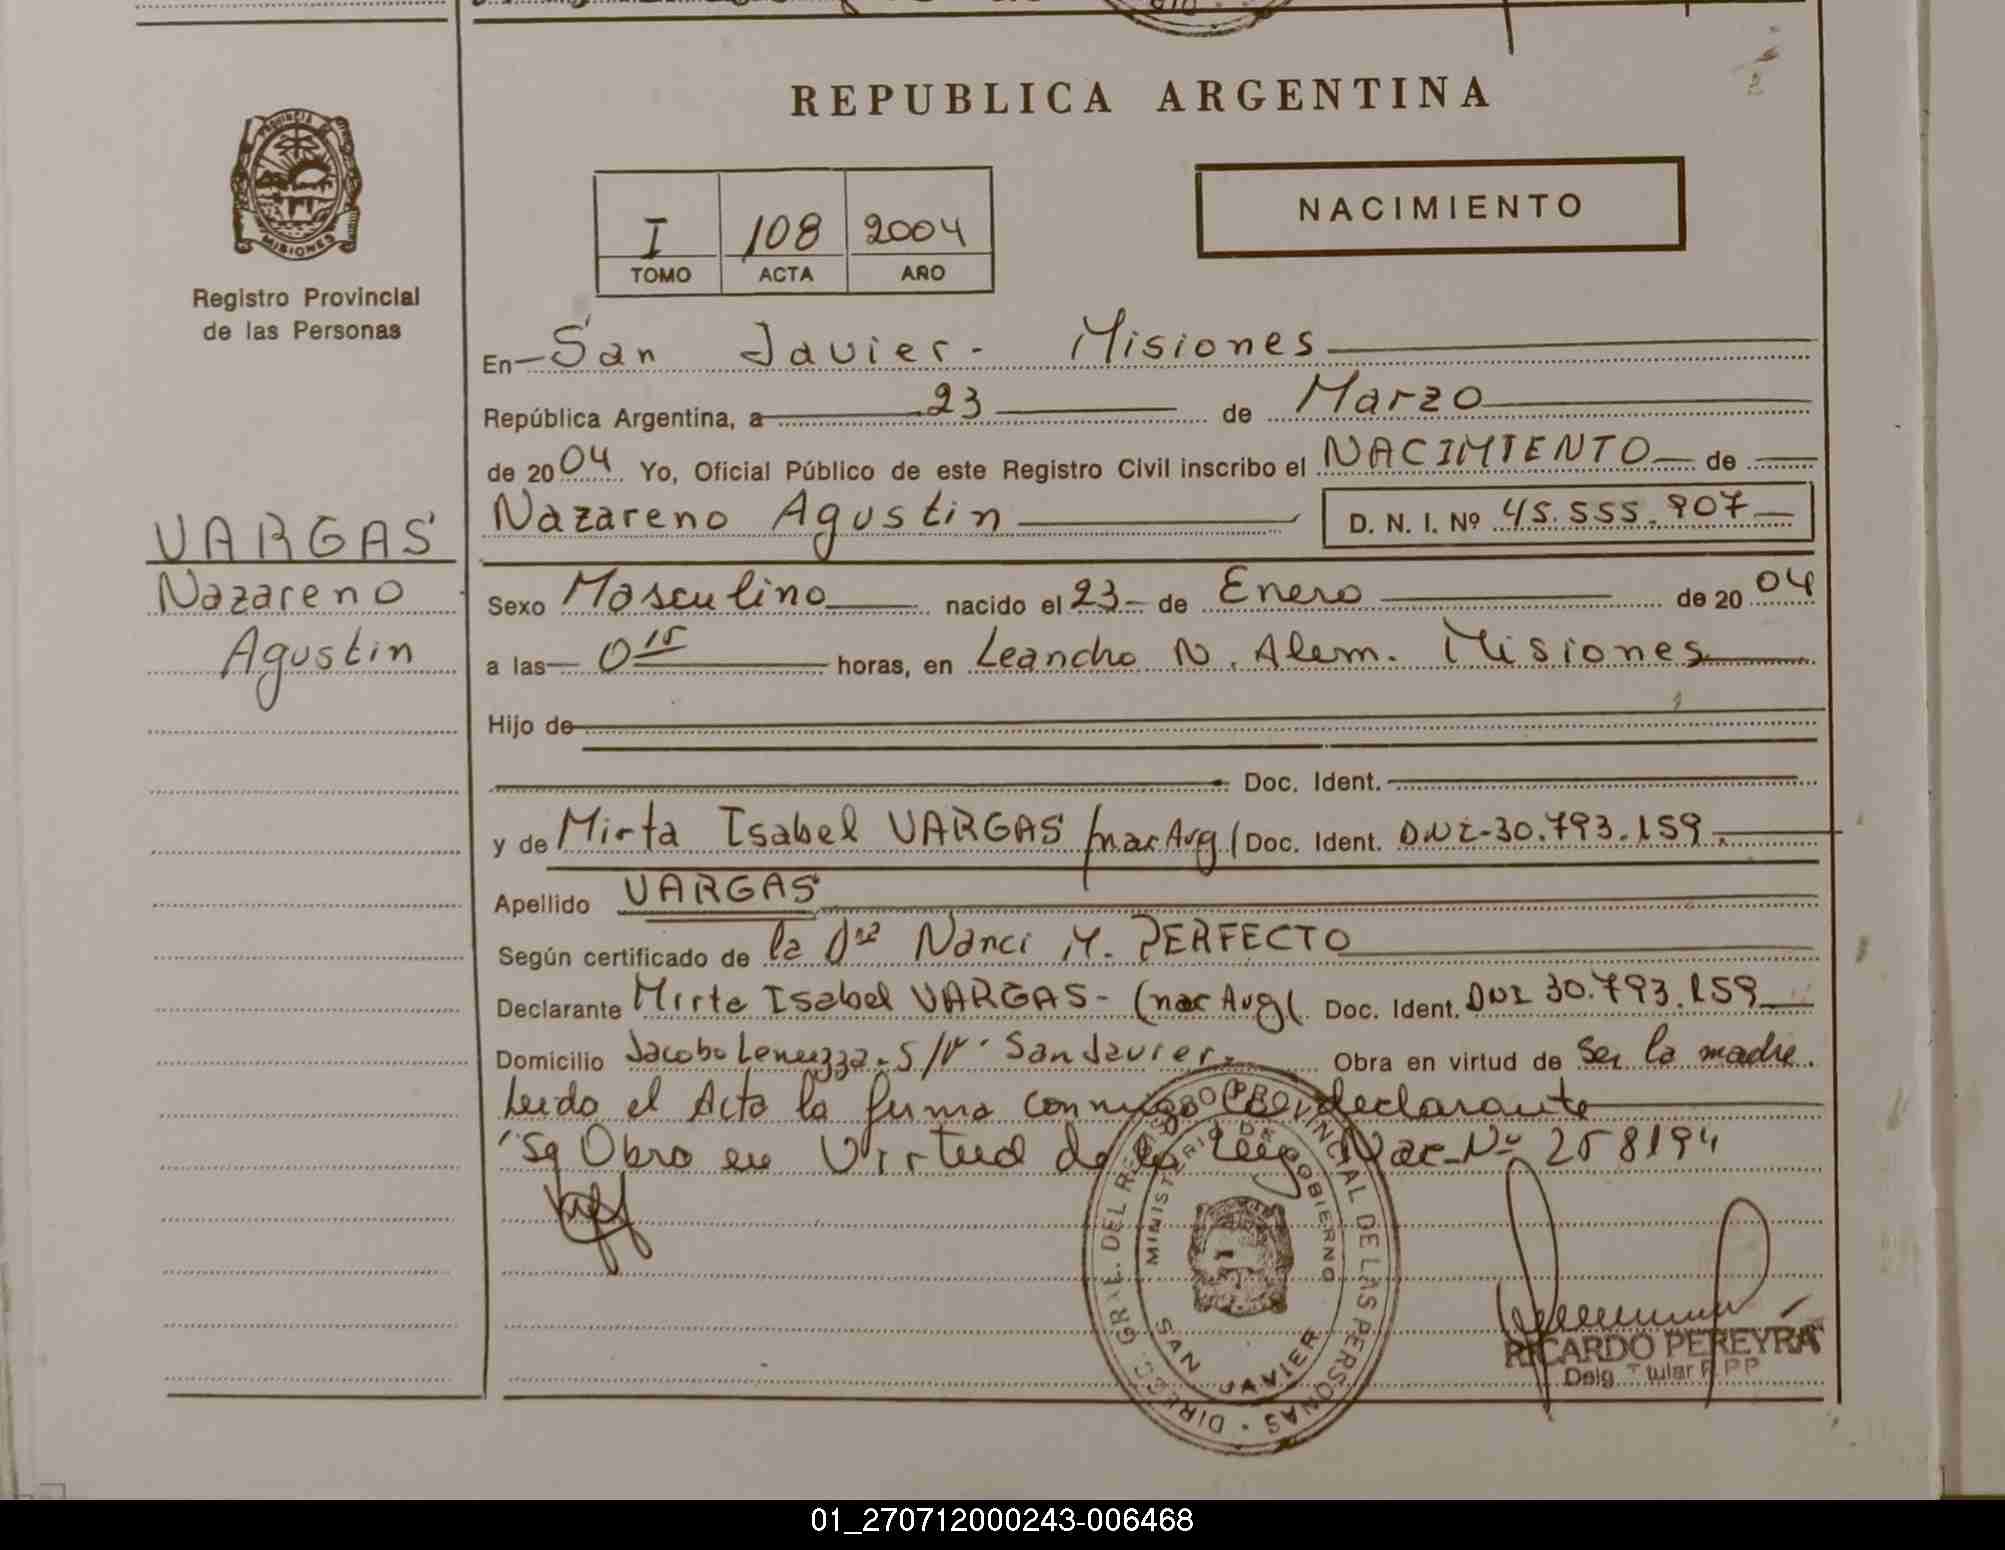 REPUBLICA ARGENTINA
PROVINCIA DE
MISIONES
Registro Provincial
de las Personas
I 108 2004
TOMO ACTA AÑO
NACIMIENTO
En San Javier - Misiones
República Argentina, a 23 de Marzo
de 2004 Yo, Oficial Público de este Registro Civil inscribo el NACIMIENTO de
Nazareno Agustin D. N. I. Nº 45.555.907
VARGAS
Nazareno
Agustin
Sexo Masculino nacido el 23 de Enero de 2004
a las 0 15 horas, en Leandro N. Alem. Misiones
Hijo de
Doc. Ident.
y de Mirta Isabel VARGAS (nac Arg( Doc. Ident. DNI-30.793.159
Apellido VARGAS
Según certificado de la Dra Nanci M. PERFECTO
Declarante Mirta Isabel VARGAS - (nac Arg( Doc. Ident. DNI 30.793.159
Domicilio Jacobo S/Nº San Javier Obra en virtud de Ser la madre.
Leido el Acta la firma conmigo la declarante
Obra en Virtud de la Ley Nac. Nº 25819
DIRECC. GRAL. DEL REGISTRO PROVINCIAL DE LAS PERSONAS
MINISTERIO DE GOBIERNO
SAN JAVIER
RICARDO PEREYRA
Delg Titular R.P.P
01_270712000243-006468